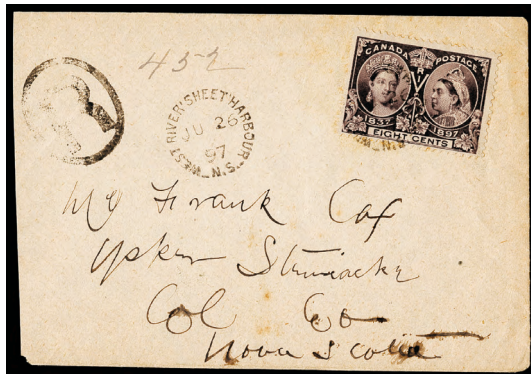 452
CANADA POSTAGE
1837 1897
EIGHT CENTS
WEST RIVER SHEET HARBOUR N.S.
JU 26
97
R
Mr Frank Cox
Upper Stewiacke
Col Co
Nova Scotia